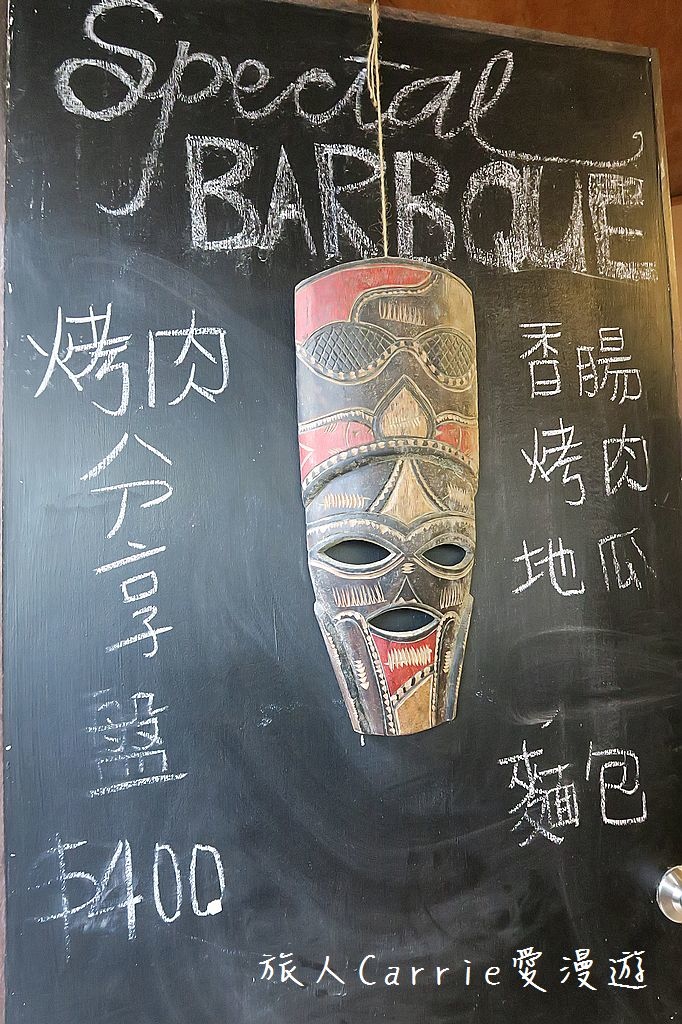 Special
BARBQUE
烤肉
分
享
盤
$400
香腸
烤肉
地瓜
麵包
旅人Carrie愛漫遊